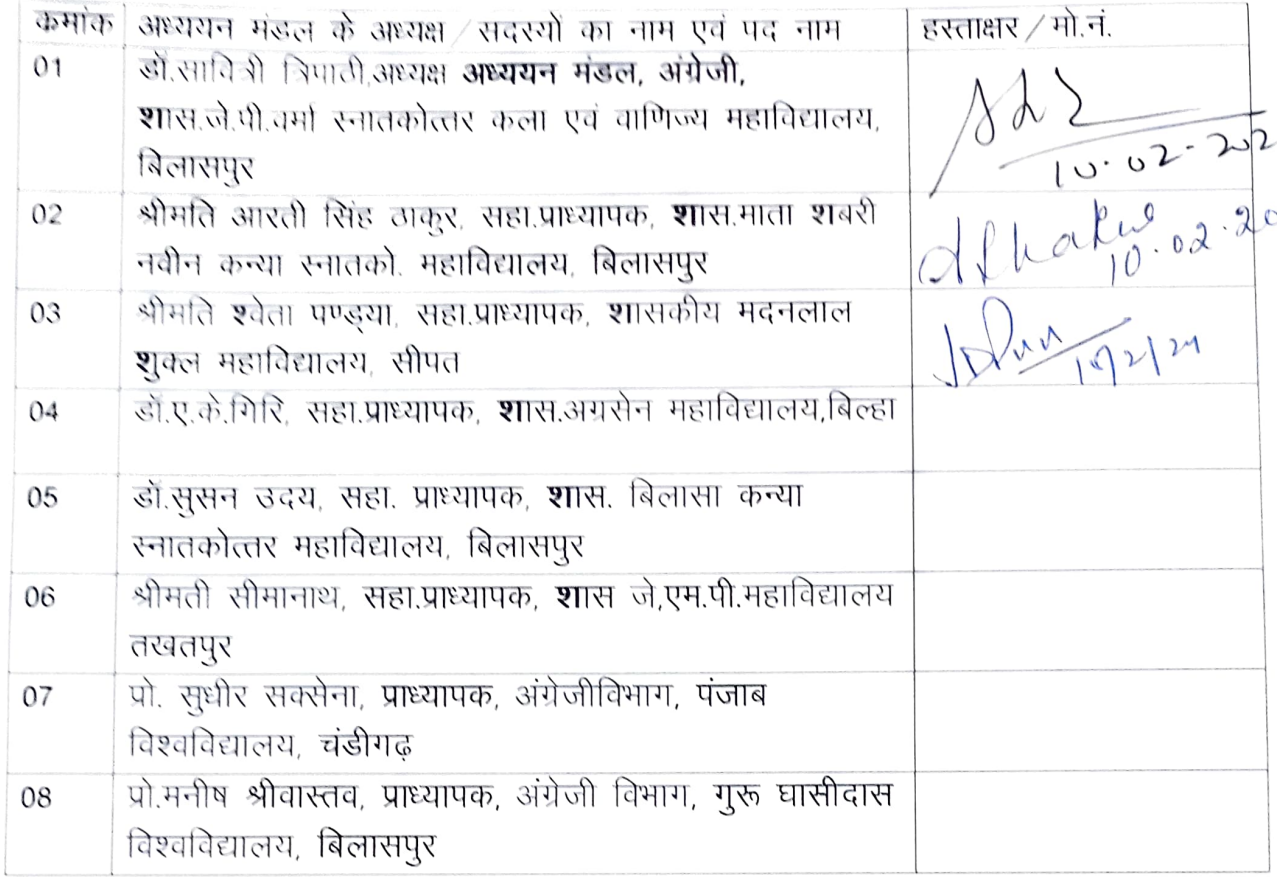 कमांक अध्ययन मंडल के अध्यक्ष / सदस्यों का नाम एवं पद नाम हस्ताक्षर / मो.नं.
01 डॉ.सावित्री त्रिपाठी,अध्यक्ष अध्ययन मंडल, अंग्रेजी,
शास.जे.पी.वर्मा स्नातकोत्तर कला एवं वाणिज्य महाविद्यालय,
बिलासपुर
10.02-202
02 श्रीमति आरती सिंह ठाकुर, सहा.प्राध्यापक, शास.माता शबरी
नवीन कन्या स्नातको. महाविद्यालय, बिलासपुर
10.02.20
03 श्रीमति श्वेता पण्ड्या, सहा.प्राध्यापक, शासकीय मदनलाल
शुक्ल महाविद्यालय, सीपत
04 डॉ.ए.के.गिरि, सहा.प्राध्यापक, शास.अग्रसेन महाविद्यालय,बिल्हा
05 डॉ.सुसन उदय, सहा. प्राध्यापक, शास. बिलासा कन्या
स्नातकोत्तर महाविद्यालय, बिलासपुर
06 श्रीमती सीमानाथ, सहा.प्राध्यापक, शास जे,एम.पी.महाविद्यालय
तखतपुर
07 प्रो. सुधीर सक्सेना, प्राध्यापक, अंग्रेजीविभाग, पंजाब
विश्वविद्यालय, चंडीगढ़
08 प्रो.मनीष श्रीवास्तव, प्राध्यापक, अंग्रेजी विभाग, गुरू घासीदास
विश्वविद्यालय, बिलासपुर